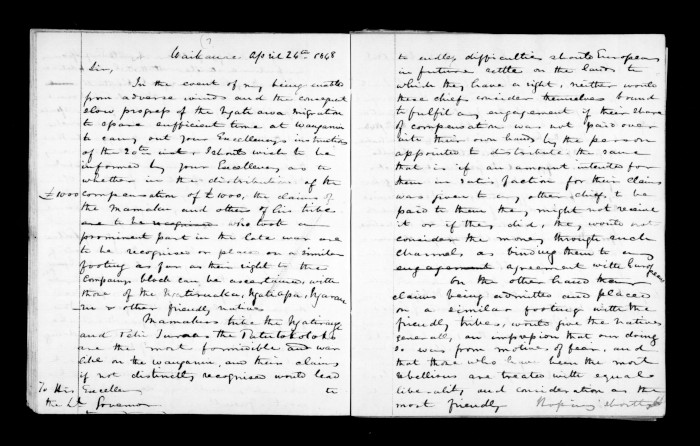 Waikanae April 26th 1848
Sir,
In the event of my being unable
from adverse winds and the consequent
slow progress of the Ngatiawa migration
to spare sufficient time at Wanganui
to carry out your Excellencys instructions
of the 20th inst. I should wish to be
informed by your Excellency as to
whether in the distribution of the
£1000 compensation of £1000, the claims of
the Mamaku and others of his tribe
are to be recognised who took a
prominent part in the late war are
to be recognised or place on a similar
footing as far as their right to the
Companys block can be ascertained with
those of the
& other friendly natives
Mamakus tribe the
and the Patutokotoko
are the most formidable and war
like on the Wanganui, and their claims
if not distinctly recognised would lead
To His Excellency to
the Lt Governor
to endless difficulties should Europeans
in future settle on the lands to
which they have a right, neither would
these chiefs consider themselves bound
to fulfil any engagement if their share
of compensation was not paid over
into their own hands by the person
appointed to distribute the same
that is if an amount intended for
them in satisfaction for their claims
was given to any other chief, to be
paid to them they might not receive
it or if they did, they would not
consider the money through such
channel, as binding them to any
engagement agreement with Europeans
On the other hand their
claims being admitted and placed
on a similar footing with the
friendly tribes, would give the natives
generally an impression that our doing
so was from motives of fear, and
that those who have been the most
rebellious are treated with equal
liberality and consideration as the
most friendly Hoping shortly